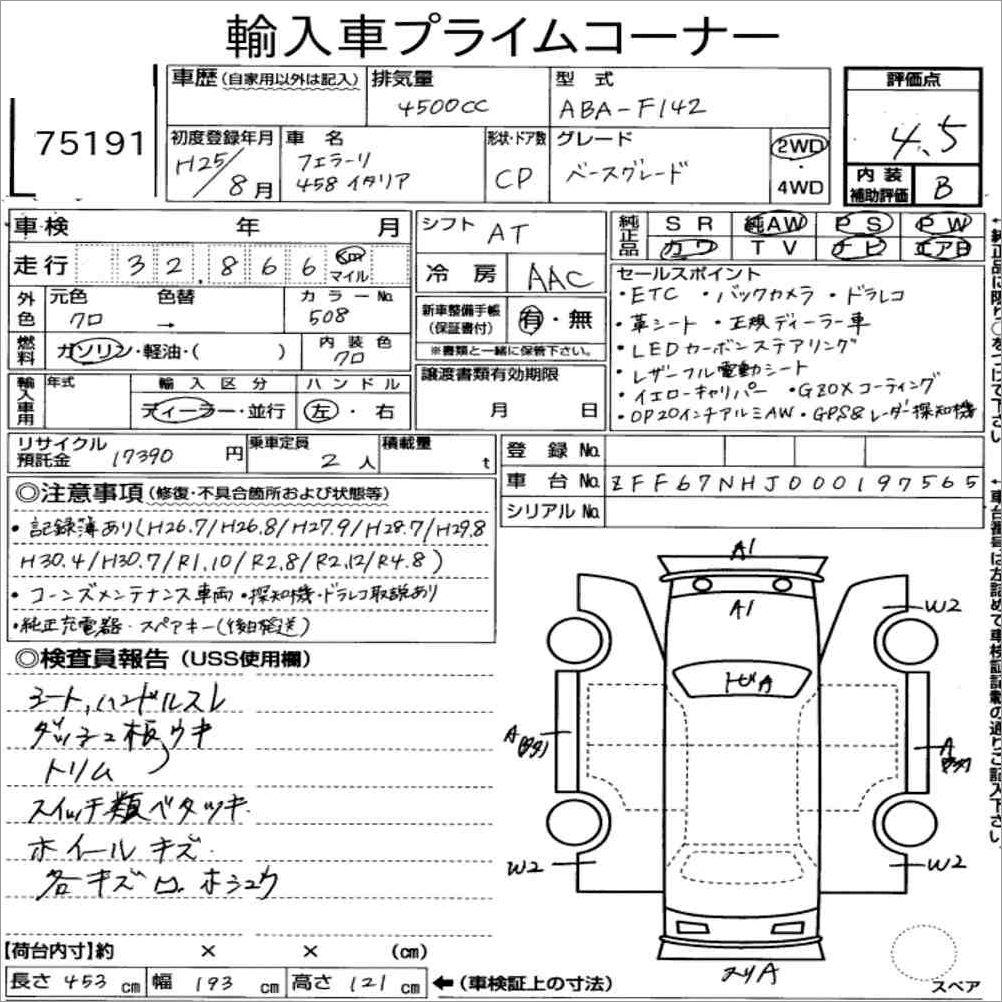 輸入車プライムコーナー
75191
車歴(自家用以外は記入)
排気量 4500CC
型式 ABA-F142
評価点 4.5
初度登録年月 H25/8月
車名 フェラーリ 458イタリア
形状・ドア数 CP
グレード ベースグレード
2WD・4WD
内装補助評価 B
車検 年 月
シフト AT
純正品 SR 純AW PS PW
カワ TV ナビ エアB
走行 32,866 km マイル
冷房 AAC
外色 元色 クロ 色替 → カラーNo. 508
新車整備手帳(保証書付) 有・無
※書類と一緒に保管下さい。
燃料 ガソリン・軽油・( )
内装色 クロ
輸入車用 年式 輸入区分 ディーラー・並行
ハンドル 左・右
譲渡書類有効期限 月 日
セールスポイント
・ETC ・バックカメラ ・ドラレコ
・革シート ・正規ディーラー車
・LEDカーボンステアリング
・レザーフル電動シート
・イエローキャリパー ・GZOXコーティング
・OP20インチアルミAW ・GPS&レーダー探知機
リサイクル預託金 17390円
乗車定員 2人
積載量 t
登録No.
車台No. ZFF67NHJ000197565
シリアルNo.
◎注意事項(修復・不具合箇所および状態等)
・記録簿あり(H26.7/H26.8/H27.9/H28.7/H29.8
H30.4/H30.7/R1.10/R2.8/R2.12/R4.8)
・コーンズメンテナンス車両 ・探知機・ドラレコ取説あり
・純正充電器・スペアキー(後日発送)
◎検査員報告(USS使用欄)
シート,ハンドルスレ
ダッシュ板ウキ
トリム
スイッチ類ベタツキ
ホイールキズ
各キズ ホシュウ
A1
A1
トビA
W2
W2
W2
A
A
スリA
【荷台内寸】約 × × (cm)
長さ 453 cm 幅 193 cm 高さ 121 cm ←(車検証上の寸法)
スペア
↑純正品に限り○をつけて下さい
↑車台番号は左詰めで車検証記載の通りご記入下さい。